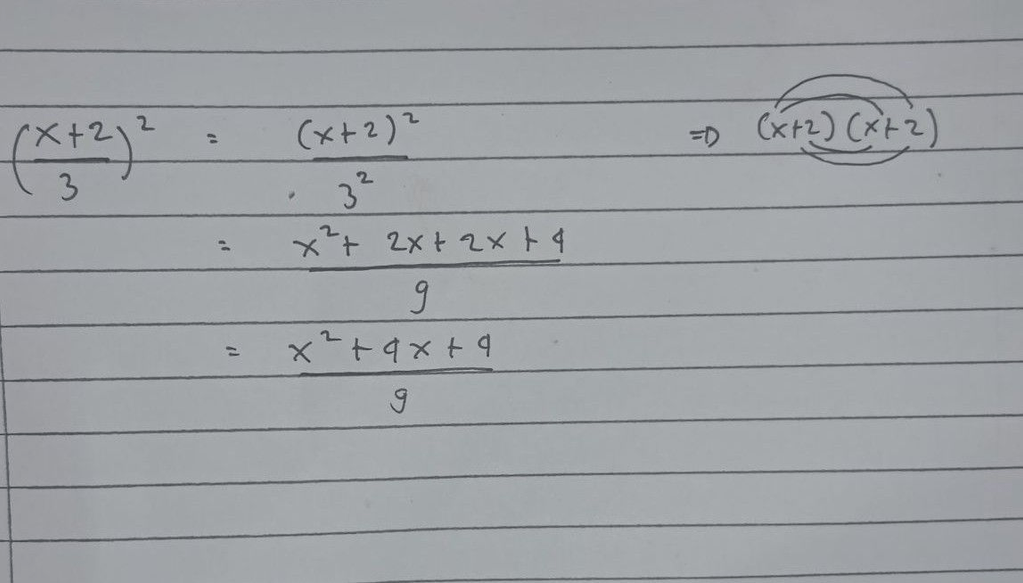 ((x+2)/3)² = (x+2)²/3² ⇒ (x+2)(x+2)
= (x²+ 2x+2x+4)/9
= (x²+4x+4)/9